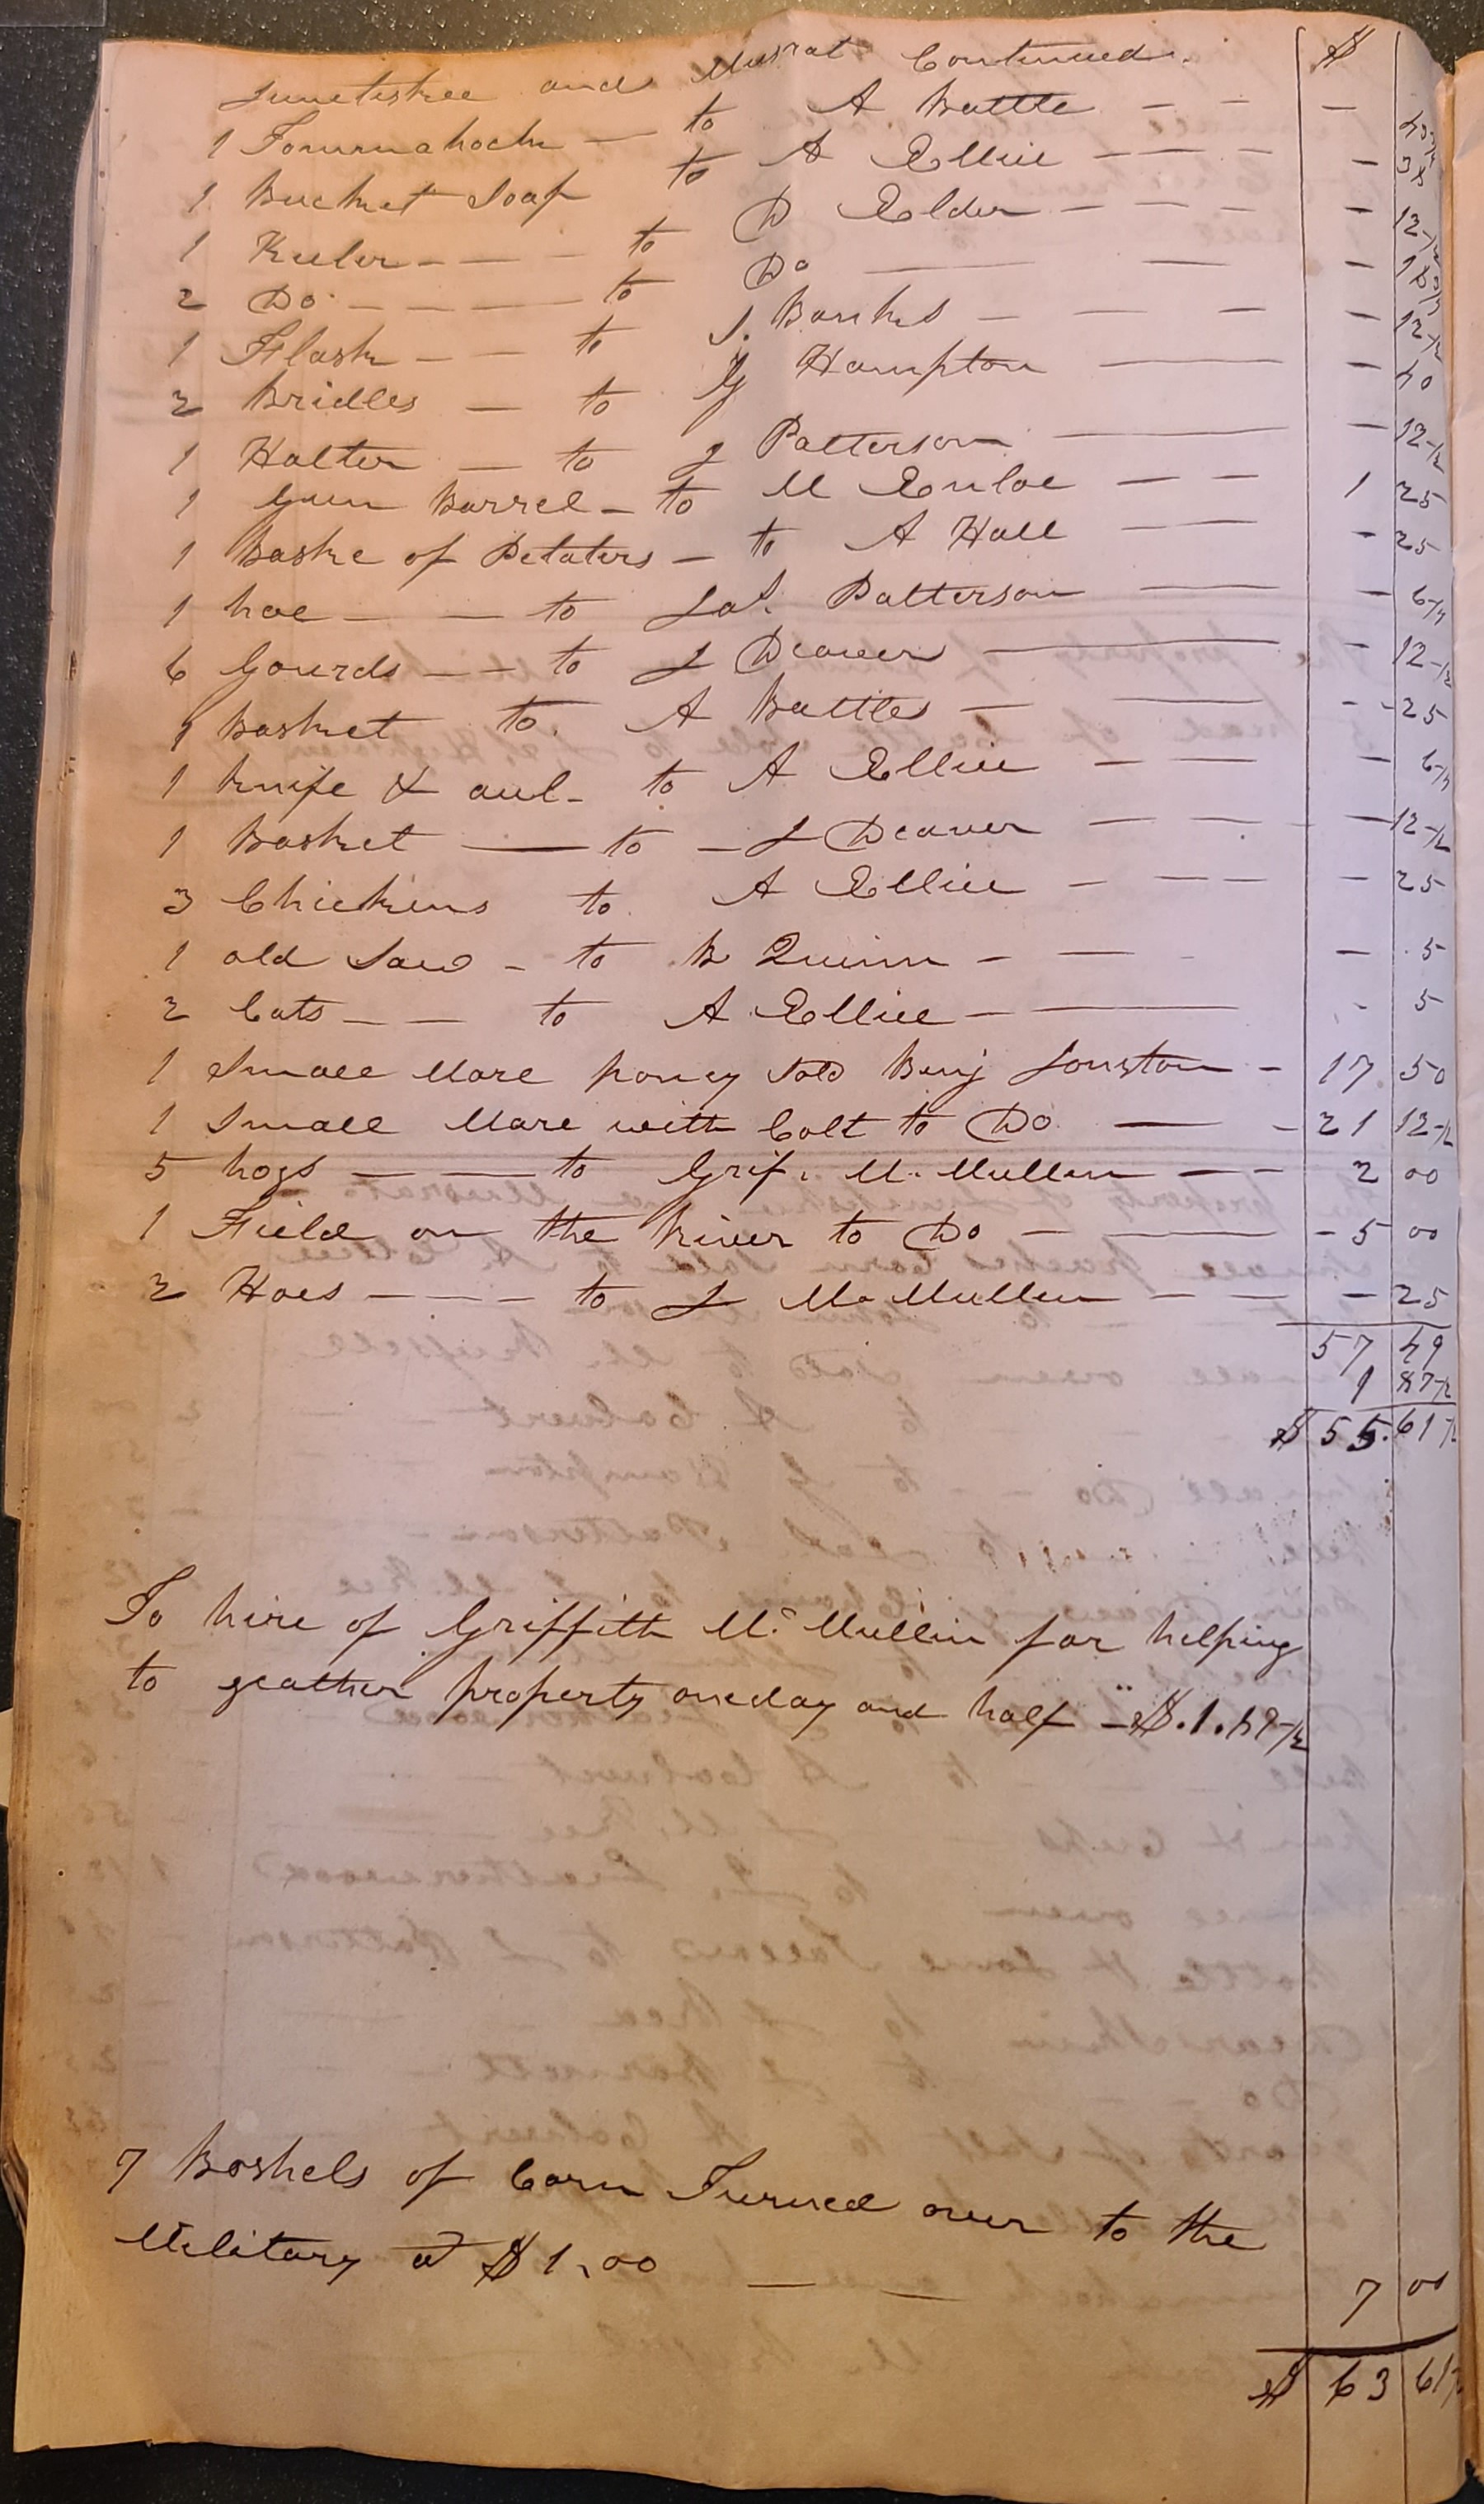 Junetiskee and Musrat Continued. $
1 Tommahochk — to A Battle — — —
1 Bucket Soap to A Ellice — — — —
1 Keeler — — — to D Elder — — — — 12-1/2
2 Do — — — to Do — — — 18
1 Flask — — to J. Banks — — — — 12-1/2
2 Bridles — to G Hampton — —
1 Halter — to J Patterson — — 12-1/2
1 Gun Barrel — to M Enloe — — 1 25
1 Baske of Petaters — to A Hall — — - 25
1 hoe — — to Jas. Patterson — — 6-1/4
6 Gourds — — to J Deaver — — 12-1/2
1 Basket to A Battles — — - - 25
1 Knife & aul - to A Ellice — — — 6-1/4
1 Basket — to — J Deaver — — — — 12-1/2
3 Chickens to A Ellice — — — — 25
1 old Saw - to B Quinn - — — 5
2 Cats — — to A Ellice — — - 5
1 Small Mare poney Sold Benj Jonston — 17 50
1 Small Mare with Colt to Do — - 21 12-1/2
5 hogs — — to Grif. Mc Mullen — — 2 00
1 Field on the River to Do — — - 5 00
2 Hoes — — — to J Mc Mullen — — — 25
57 49
1 87-1/2
$ 55.61 1/2
To hire of Griffith Mc Mullin for helping
to geather property oneday and half - $.1.87-1/2
7 Boshels of Corn Turned over to the
Military @ $1.00 — — 7 00
$ 63 61 1/2